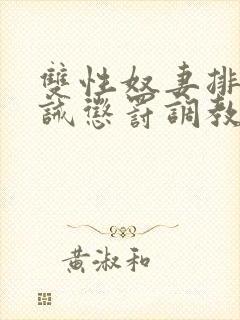 雙性奴妻排
誡懲罰調教
黃淑和